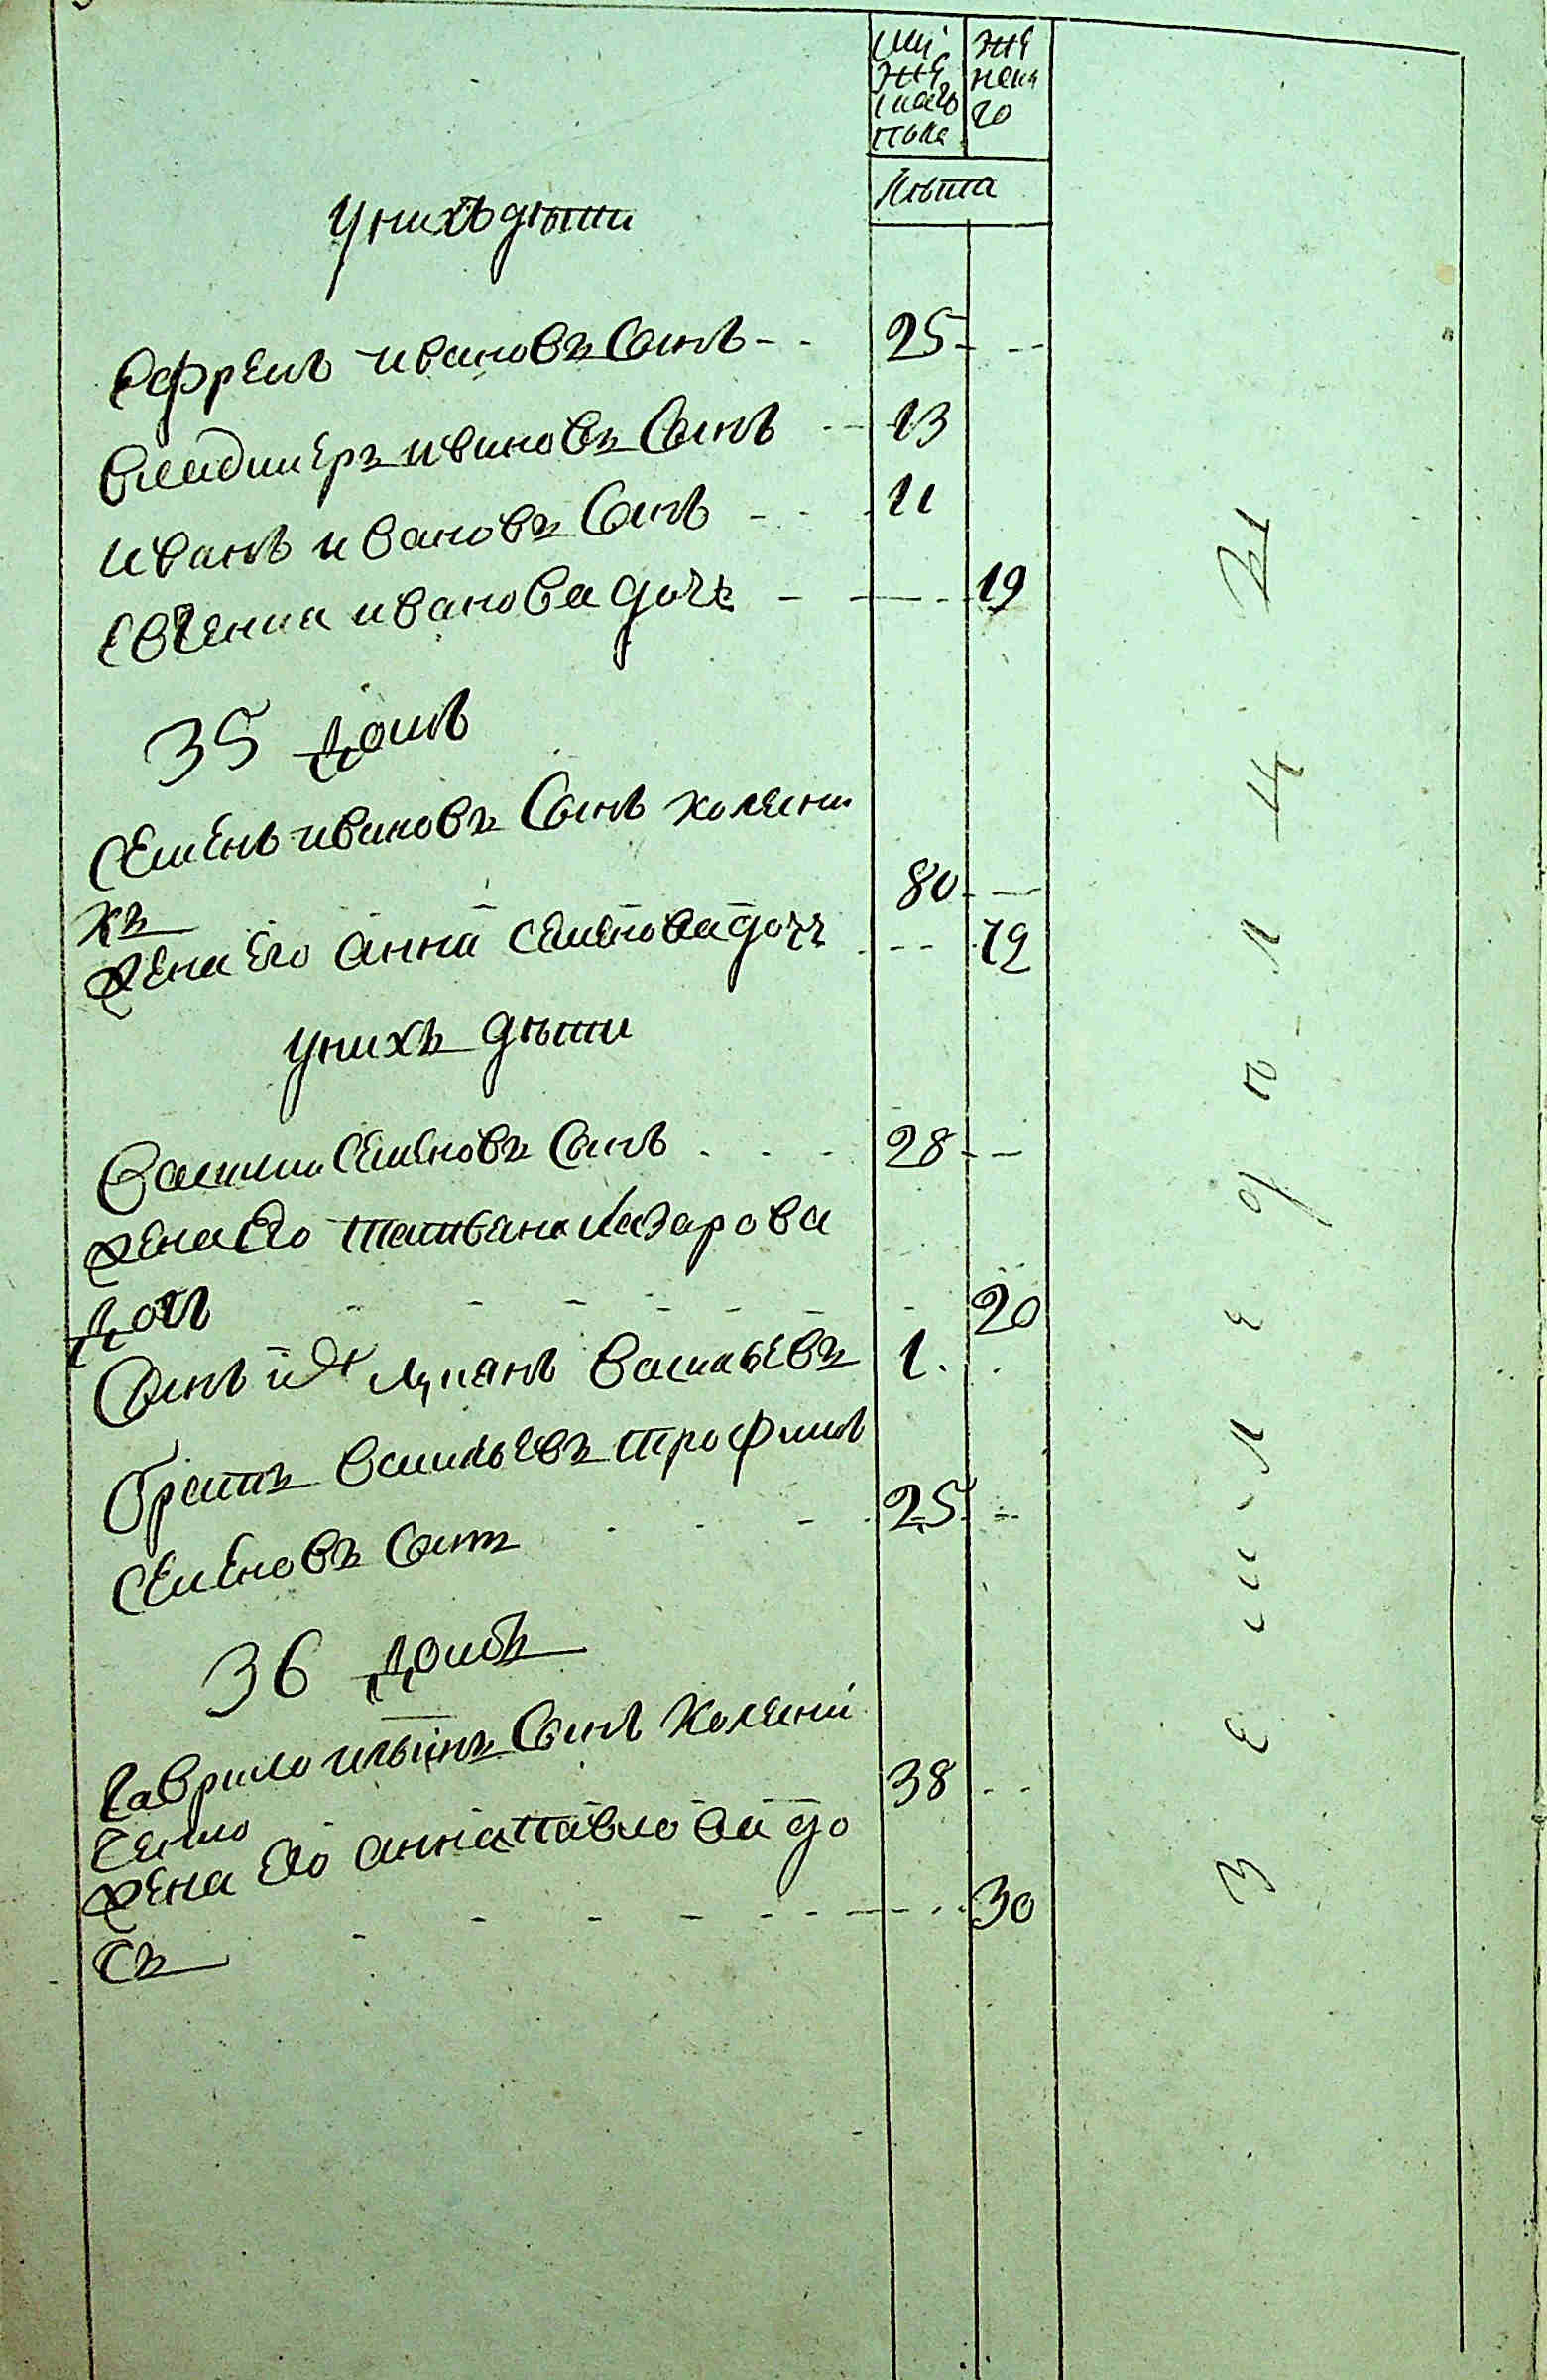 му
же
скаго
пола
же
нска
го
Лѣта
у нихъ дѣти
Ефремъ ивановъ Сынъ 25
владимеръ ивановъ Сынъ 13
иванъ ивановъ Сынъ 11
Евгениа иванова дочь 19
35 домъ
Семенъ ивановъ Сынъ колесни
къ 80
жена Его анна семенова дочь 79
у нихъ дѣти
Василии Семеновъ Сынъ 28
жена Его татьяна лазарова
дочь 20
Сынъ ихъ лукянъ васильевъ 1
братъ васильевъ трофимъ
Семеновъ Сынъ 25
36 домъ
Гаврило ильинъ Сынъ колесни
ченко 38
жена Его анна павлова до
чь 30
З е м л е д е л ц ы